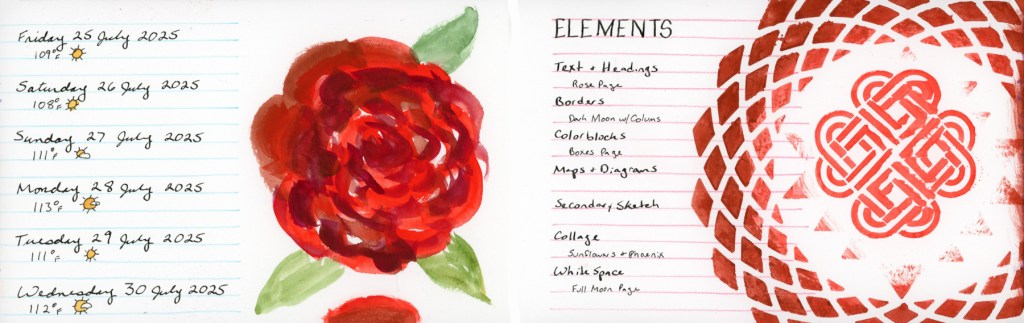 Friday 25 July 2025
109°F
Saturday 26 July 2025
108°F
Sunday 27 July 2025
111°F
Monday 28 July 2025
113°F
Tuesday 29 July 2025
111°F
Wednesday 30 July 2025
112°F
ELEMENTS
Text + Headings
Rose Page
Borders
Dark Moon w/Colums
Colorblocks
Boxes Page
Maps + Diagrams
Secondary Sketch
Collage
Sunflowers + Phoenix
White Space
Full Moon Page